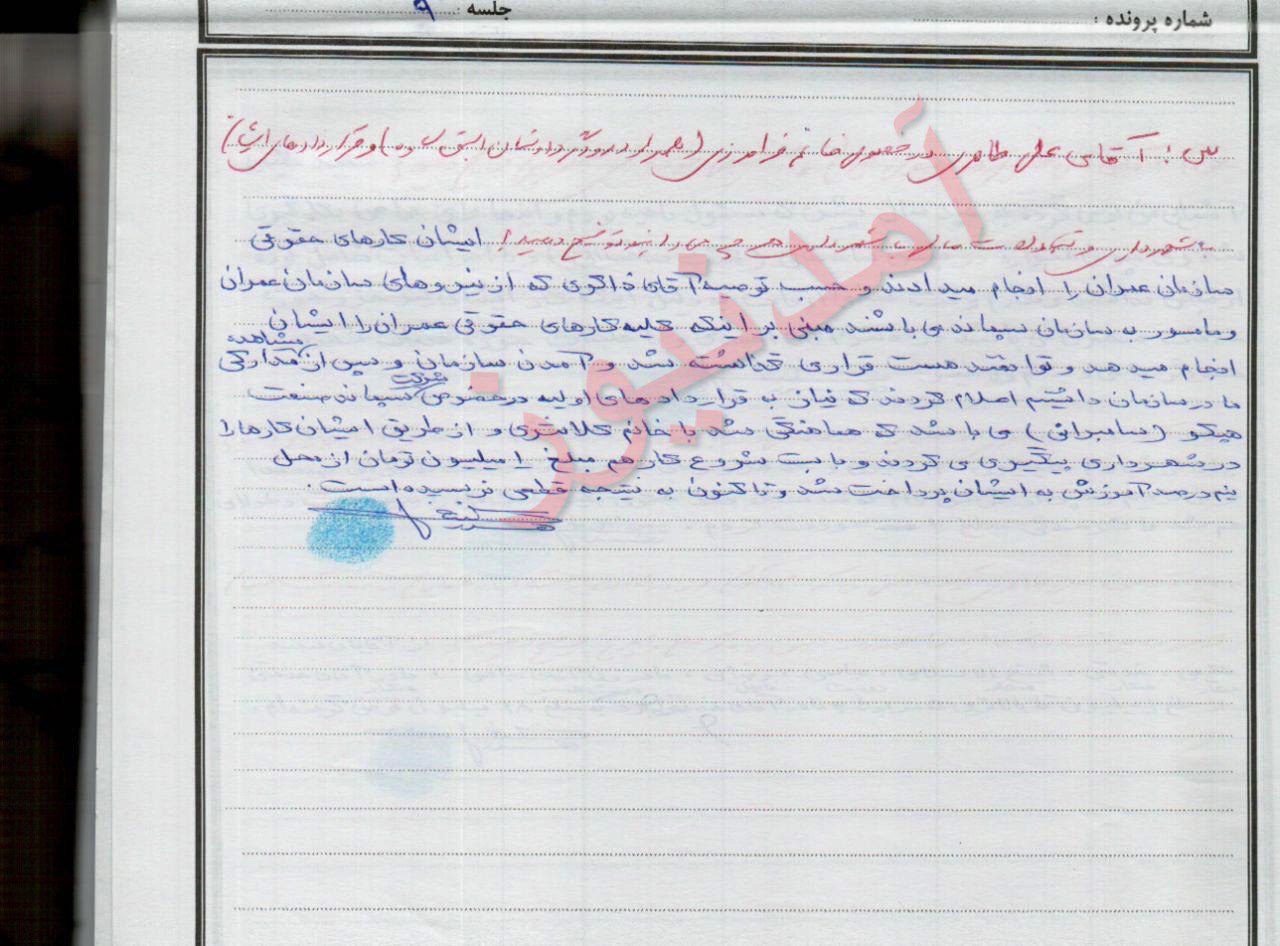 شماره پرونده :
جلسه : ۹
س : آقای علی طاهری در خصوص خانم فرامرزی و قراردادهای ایشان
شهرداری و شهرداری هر چه می دانید توضیح دهید؟ ایشان کارهای حقوقی
سازمان عمران را انجام میدادند و حسب توصیه آقای ذاکری که از نیروهای سازمان عمران
و مامور به سازمان پسماند می باشند مبنی بر اینکه کلیه کارهای حقوقی عمران را ایشان
انجام میدهد و توانمند هست قراری گذاشته شد و آمدن سازمان و پس از مشاهده مدارکی
ما در سازمان داشتیم اعلام کردند که نیاز به قراردادهای اولیه درخصوص شرکت پسماند صنعت
هپکو (سامبرانی) می باشد که هماهنگی شد با خانم کلانتری و از طریق ایشان کارها را
در شهرداری پیگیری می کردند و بابت شروع کار هم مبلغ ۱ میلیون تومان از محل
نیم درصد آموزش به ایشان پرداخت شد و تاکنون به نتیجه قطعی نرسیده است.
آمدنیوز